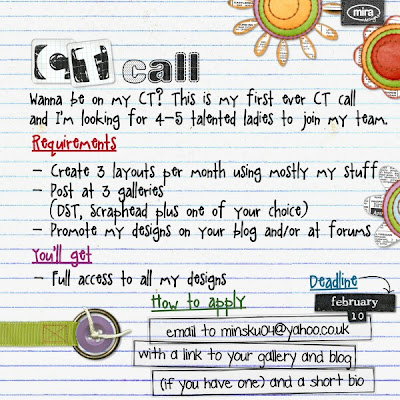 mira
CT call
Wanna be on my CT? This is my first ever CT call
and I'm looking for 4-5 talented ladies to join my team.
Requirements
- Create 3 layouts per month using mostly my stuff
- Post at 3 galleries
(DST, Scraphead plus one of your choice)
- Promote my designs on your blog and/or at forums
You'll get
- Full access to all my designs
Deadline
february
10
How to apply
email to minsku04@yahoo.co.uk
with a link to your gallery and blog
(if you have one) and a short bio